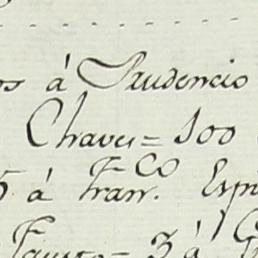 os á Prudencio
Chaves = 100
5 á Fran.co Espi
Fausto = 3 á